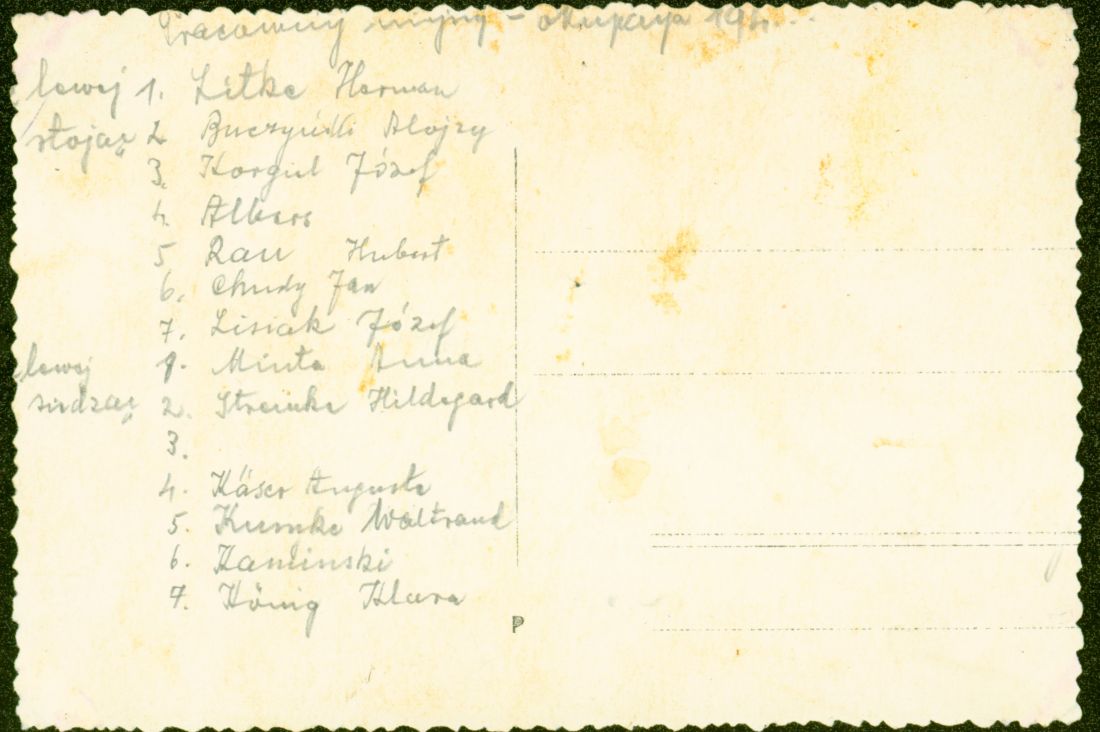 Pracownicy - okupacja 194...
lewej 1. Litke Herman
stojąc 2 Buczyński Alojzy
3. Korgul Józef
4. Albers
5 Rau Hubert
6. Chudy Jan
7. Lisiak Józef
lewej 1. Minta Anna
siedząc 2. Streinke Hildegard
3.
4. Käser Auguste
5. Kumke Waltraud
6. Kaminski
7. König Klara
P